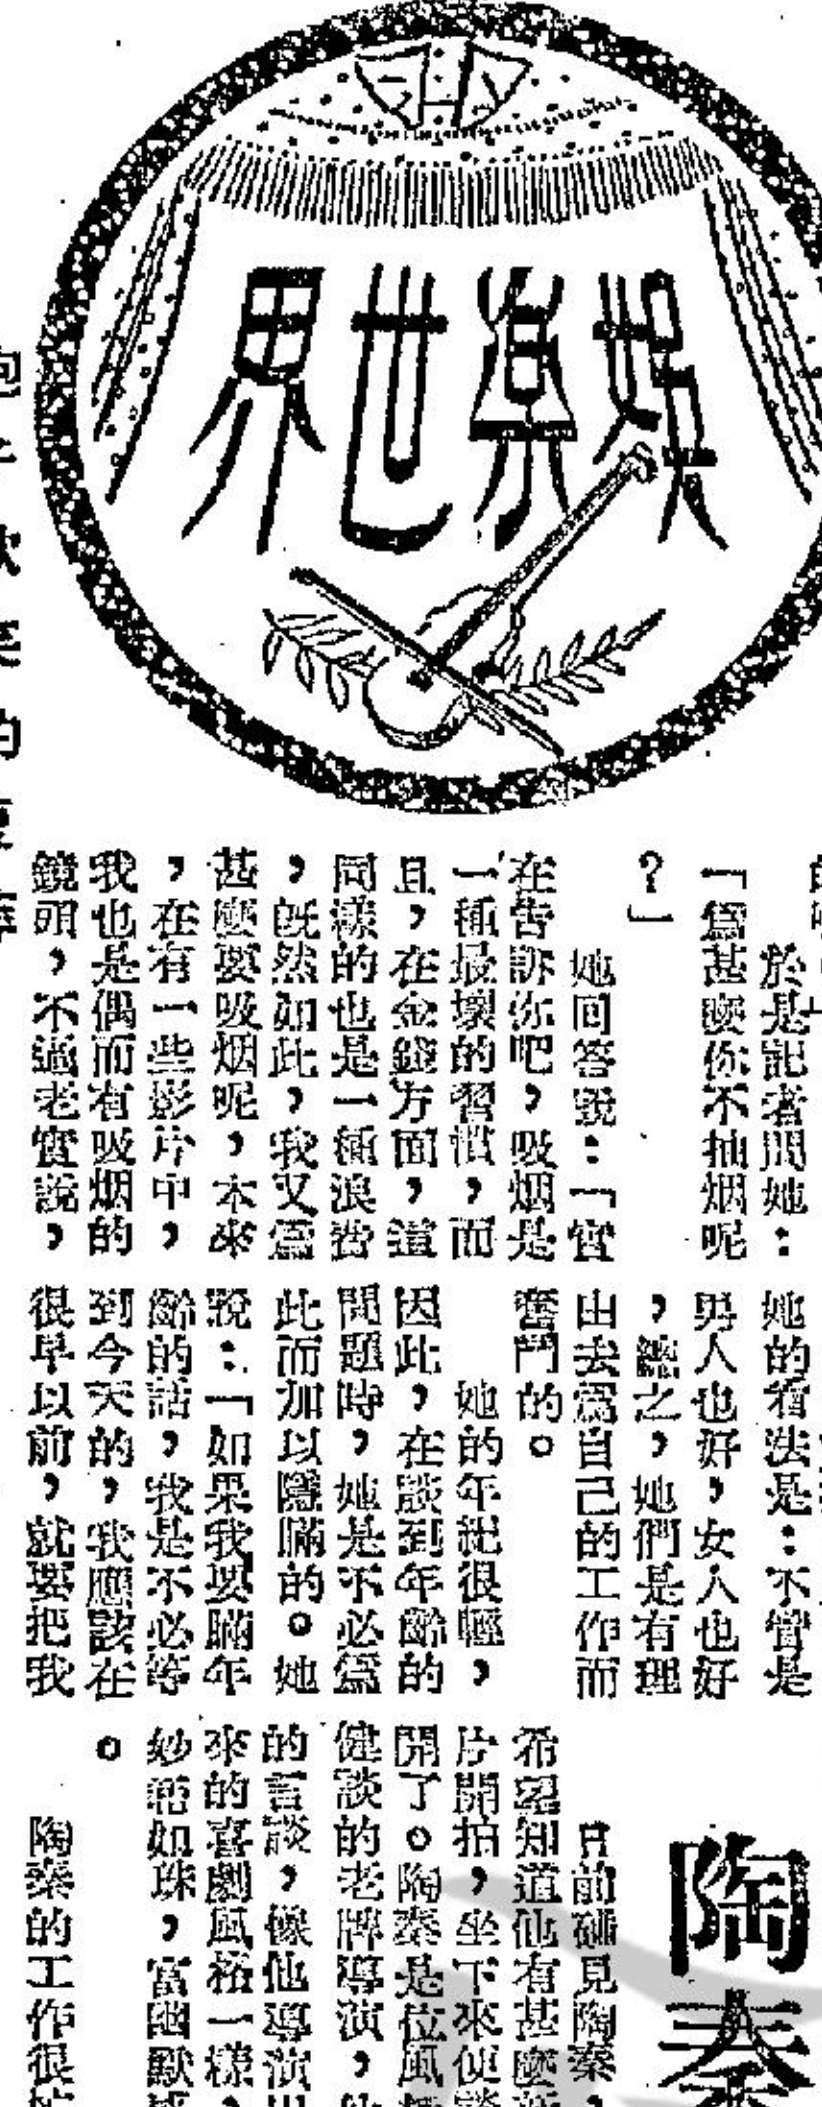 娛樂世界
於是記者問她：
「爲甚麽你不抽烟呢
？」
她回答說：「實
在告訴你吧，吸烟是
一種最壞的習慣，而
且，在金錢方面，這
同樣的也是一種浪費
，旣然如此，我又爲
甚麽要吸烟呢，本來
，在有一些影片中，
我也是偶而有吸烟的
鏡頭，不過老實說，
她的看法是：不管是
男人也好，女人也好
，總之，她們是有理
由去爲自己的工作而
奮鬥的。
她的年紀很輕，
因此，在談到年齡的
問題時，她是不必爲
此而加以隱瞞的。她
說：「如果我要瞞年
齡的話，我是不必等
到今天的，我應該在
很早以前，就要把我
陶秦
日前碰見陶秦，
希望知道他有甚麽新
片開拍，坐下來便談
開了。陶秦是位風趣
健談的老牌導演，他
的言談，像他導演出
來的喜劇風格一樣，
妙語如珠，富幽默感
。
陶秦的工作很忙